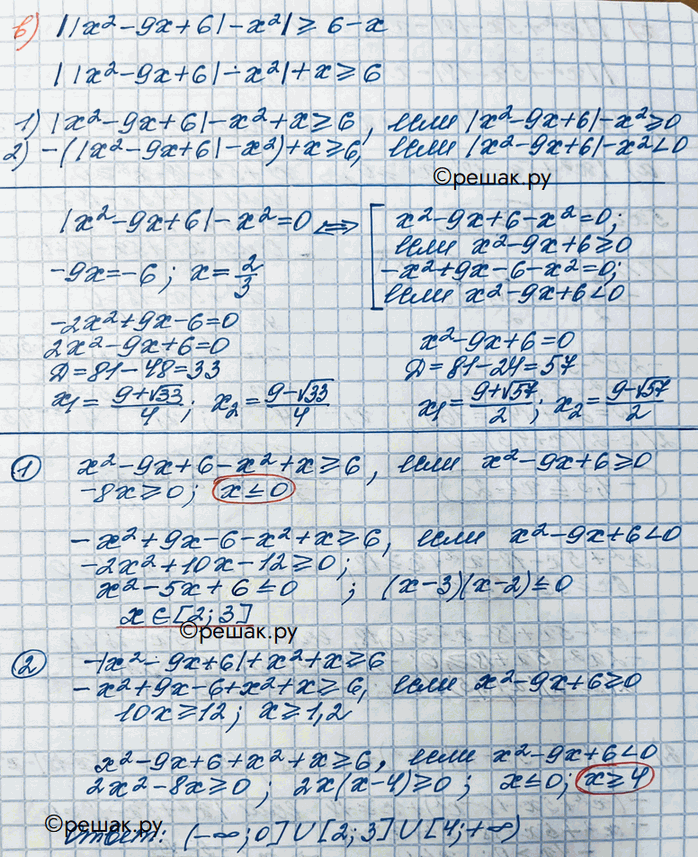 в) ||x²-9x+6|-x²|≥6-x
||x²-9x+6|-x²|+x≥6
1) |x²-9x+6|-x²+x≥6, если |x²-9x+6|-x²≥0
2) -(|x²-9x+6|-x²)+x≥6, если |x²-9x+6|-x²<0
©решак.ру
|x²-9x+6|-x²=0 ⟺ [ x²-9x+6-x²=0;
если x²-9x+6≥0
-x²+9x-6-x²=0;
если x²-9x+6<0
-9x=-6; x=2/3
-2x²+9x-6=0
2x²-9x+6=0
Д=81-48=33
x₁=(9+√33)/4; x₂=(9-√33)/4
x²-9x+6=0
Д=81-24=57
x₁=(9+√57)/2; x₂=(9-√57)/2
① x²-9x+6-x²+x≥6, если x²-9x+6≥0
-8x≥0; x≤0
-x²+9x-6-x²+x≥6, если x²-9x+6<0
-2x²+10x-12≥0;
x²-5x+6≤0; (x-3)(x-2)≤0
x∈[2;3]
©решак.ру
② -|x²-9x+6|+x²+x≥6
-x²+9x-6+x²+x≥6, если x²-9x+6≥0
10x≥12; x≥1,2
x²-9x+6+x²+x≥6, если x²-9x+6<0
2x²-8x≥0; 2x(x-4)≥0; x≤0; x≥4
©решак.ру
Ответ: (-∞;0]∪[2;3]∪[4;+∞)